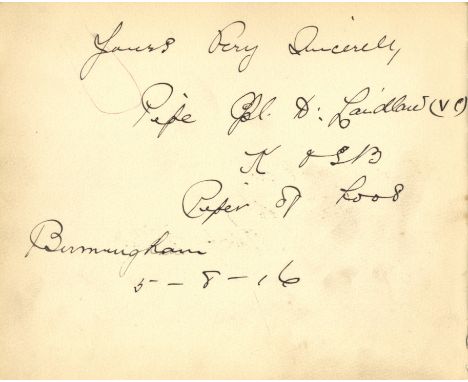 Yours Very Sincerely
Pipe Cpl. D. Laidlaw (VC)
K O S B
Piper of Loos
Birmingham
5-8-16